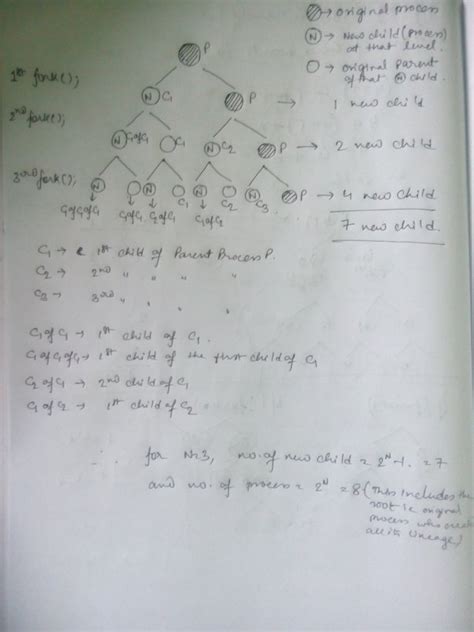 → original process
N → New child (process) at that level.
→ original parent of that N child.
P
1st fork();
N C1 P → 1 new child
2nd fork();
N C1 of C1 C1 N C2 P → 2 new child
3rd fork();
N N N N P → 4 new child
C1 of C1 of C1 C1 of C1 C2 of C1 C1 C1 of C2 C2 C3
7 new child.
C1 → 1st child of Parent Process P.
C2 → 2nd " " " "
C3 → 3rd " " " "
C1 of C1 → 1st child of C1.
C1 of C1 of C1 → 1st child of the first child of C1
C2 of C1 → 2nd child of C1
C1 of C2 → 1st child of C2
∴ for N=3, no. of new child = 2^N - 1. = 7
and no. of process = 2^N = 8 (This includes the
root i.e original
process who
all its lineage)